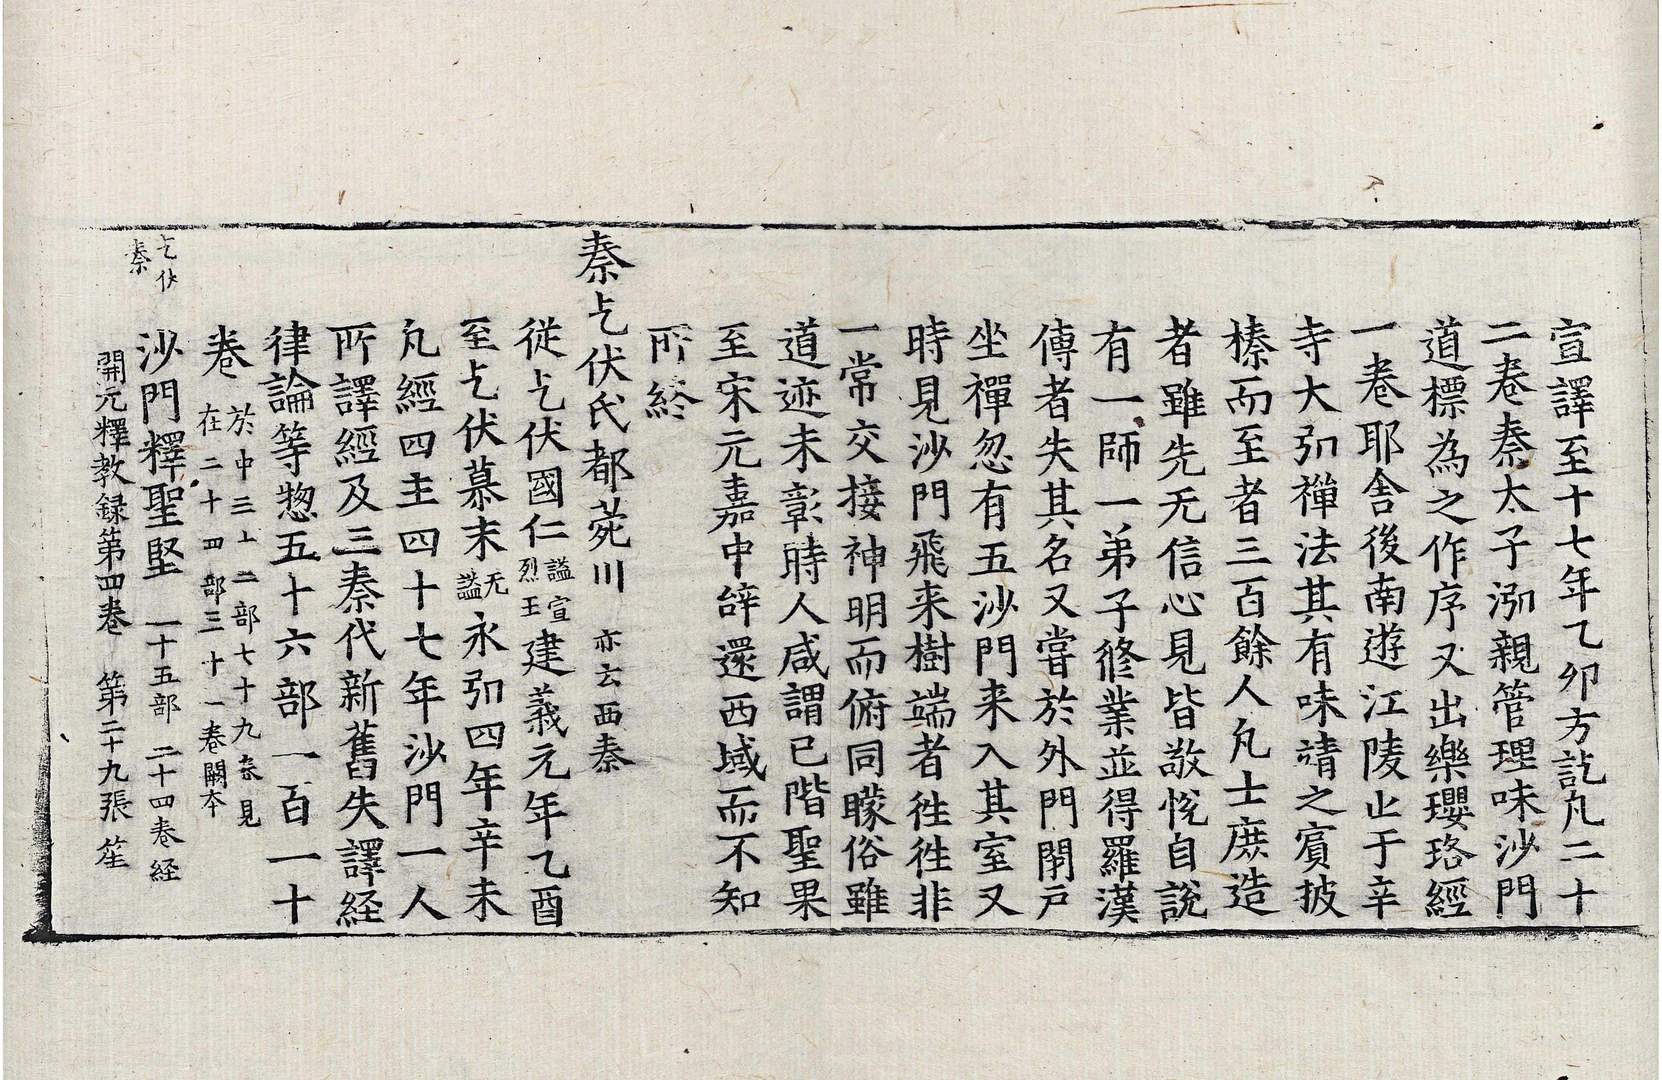 宣譯至十七年乙夘方訖凡二十
二巻秦太子泓親管理味沙門
道標為之作序又出樂瓔珞經
一巻耶舎後南遊江陵止于辛
寺大弘禪法其有味靖之賔披
榛而至者三百餘人凡士庶造
者雖先无信心見皆敬恱自說
有一師一弟子修業並得羅漢
傳者失其名又甞於外門閉戸
坐禪忽有五沙門来入其室又
時見沙門飛来樹端者徃徃非
一常交接神明而俯同矇俗雖
道迹未彰時人咸謂已階聖果
至宋元嘉中辝還西域而不知
所終
秦乞伏氏都菀川 亦云西秦
從乞伏國仁謚宣烈王建義元年乙酉
至乞伏慕末无謚永弘四年辛未
凡經四主四十七年沙門一人
所譯經及三秦代新舊失譯経
律論等惣五十六部一百一十
巻 於中三十二部七十九巻見在二十四部三十一巻闕本
乞伏秦 沙門釋聖堅 一十五部 二十四巻経
開元釋教録第四巻 第二十九張 笙